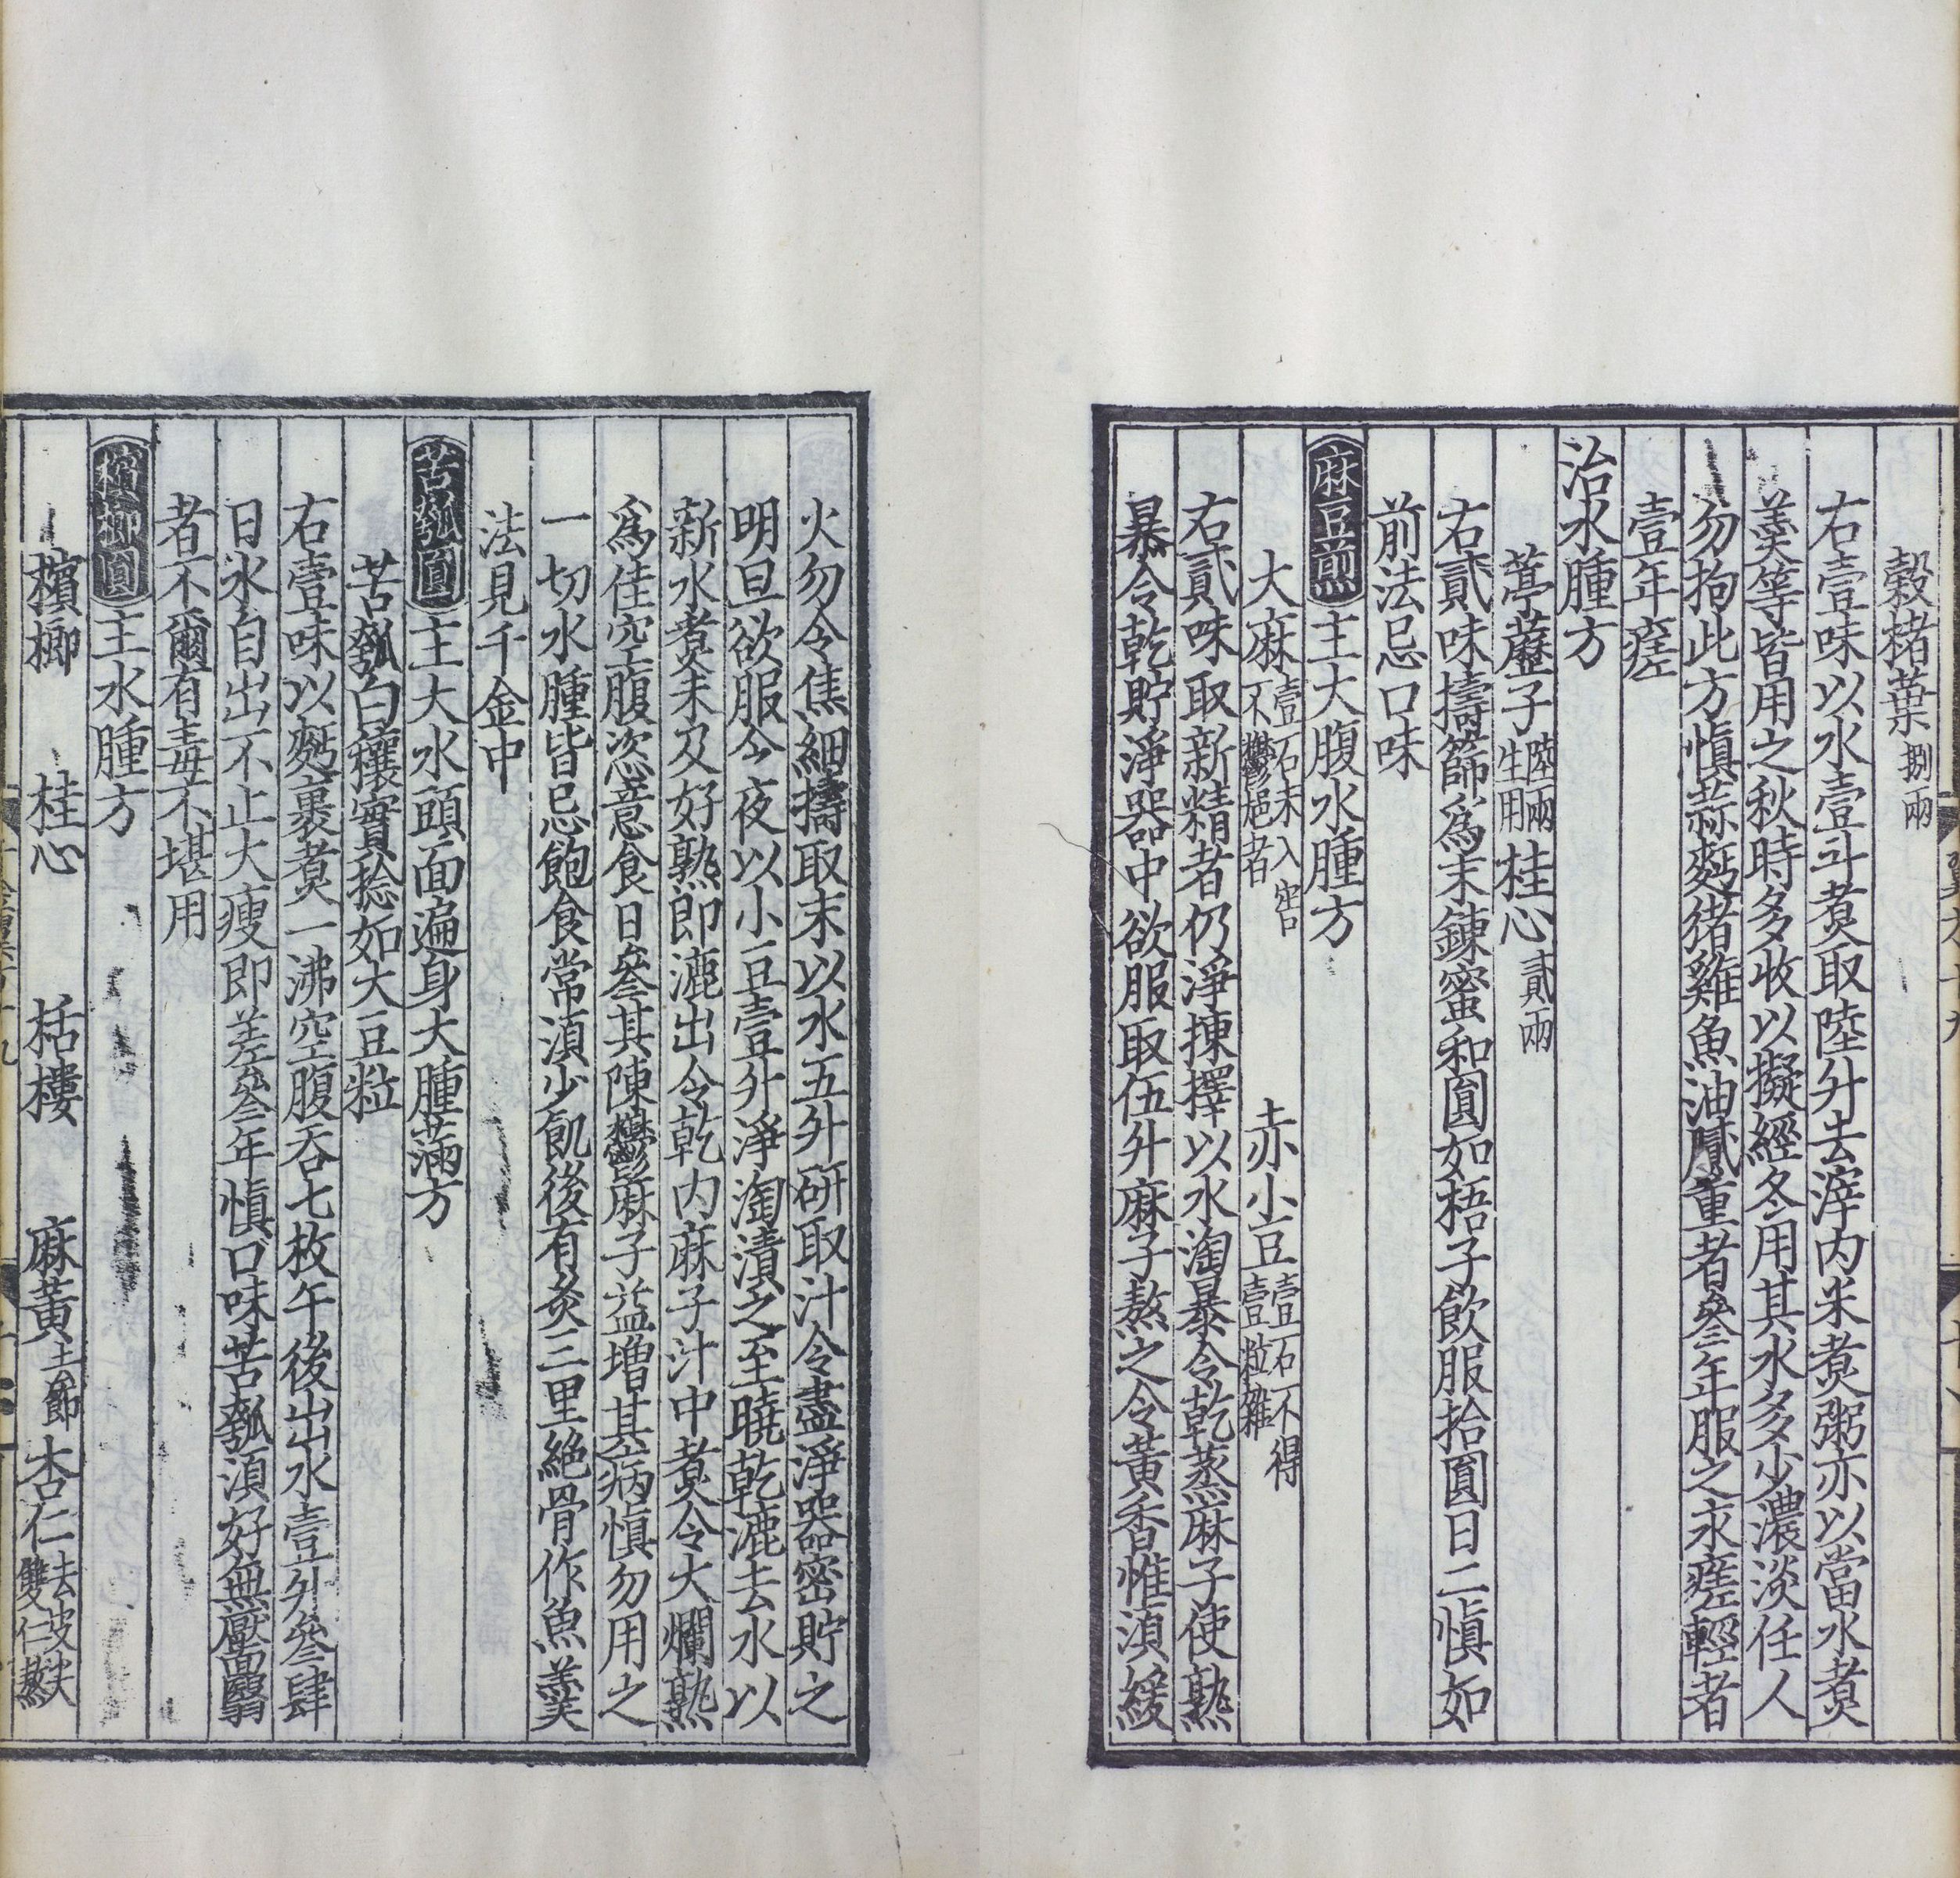 穀楮葉捌兩
右壹味以水壹斗煮取陸升去滓内米煮粥亦以當水煮
羹等皆用之秋時多收以擬經冬用其水多少濃淡任人
勿拘此方慎蒜麪猪雞魚油膩重者叁年服之永瘥輕者
壹年瘥
治水腫方
葶藶子陸兩生用桂心貳兩
右貳味擣篩爲末鍊蜜和圓如梧子飲服拾圓日二慎如
前法忌口味
麻豆煎主大腹水腫方
大麻壹石未入窖不鬱浥者 赤小豆壹石不得壹粒雜
右貳味取新精者仍淨揀擇以水淘暴令乾蒸麻子使熟
暴令乾貯淨器中欲服取伍升麻子熬之令黃香惟湏緩
火勿令焦細擣取末以水五升研取汁令盡淨器密貯之
明旦欲服今夜以小豆壹升淨淘漬之至曉乾漉去水以
新水煮未及好熟即漉出令乾内麻子汁中煮令大爛熟
爲佳空腹恣意食日叁其陳鬱麻子益增其病慎勿用之
一切水腫皆忌飽食常湏少飢後有灸三里絶骨作魚羹
法見千金中
苦瓠圓主大水頭面遍身大腫滿方
苦瓠白穰實捻如大豆粒
右壹味以麪裹煮一沸空腹吞七枚午後出水壹升叁肆
日水自出不止大瘦即差叁年慎口味苦瓠湏好無靨翳
者不爾有毒不堪用
檳榔圓主水腫方
檳榔 桂心 栝樓 麻黃去節 杏仁去皮尖雙仁熬